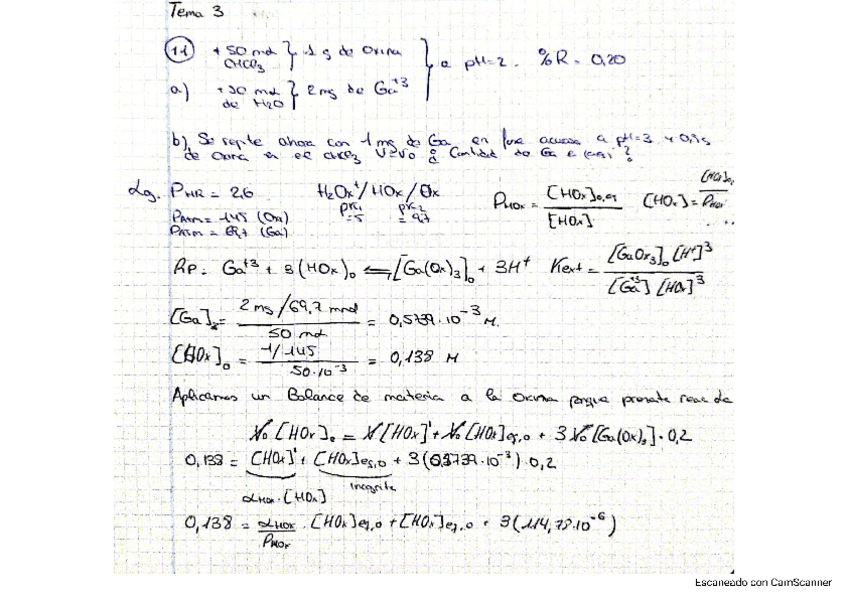 Tema 3
11 + 50 ml CHCl3 } 1 g de Oxina } a pH=2. %R = 0,20
a) +50 ml de H2O } 2 mg de Ga+3
b) Se repite ahora con 1 mg de Ga en fase acuosa a pH=3 y 0,1 g
de Oxina en el CHCl3 V=Vo ¿Cantidad de Ga e (aq)?
Lg. PHR = 2,6 H2Ox+/HOx/Ox PHOx = [HOx]o,eq / [HOx] [HOx] = [HOx]o / PHOx
pK1 = 5 pK2 = 9,7
PATM = 145 (Ox)
PATM = 69,7 (Ga)
RP = Ga+3 + 3(HOx)o ⇌ [Ga(Ox)3]o + 3H+ Kext = [GaOx3]o [H+]3 / [Ga+3] [HOx]3
[Ga] = 2 mg/69,7 mmol / 50 ml = 0,5739·10-3 M.
[HOx]o = 1/145 / 50·10-3 = 0,138 M
Aplicamos un Balance de materia a la Oxina porque
Vo [HOx]o = V[HOx]' + Vo [HOx]eq,o + 3 Vo [Ga(Ox)3]·0,2
0,138 = [HOx]' + [HOx]eq,o + 3(0,5739·10-3)·0,2
αHOx·[HOx] incognita
0,138 = αHOx / PHOx · [HOx]eq,o + [HOx]eq,o + 3(114,78·10-6)
Escaneado con CamScanner